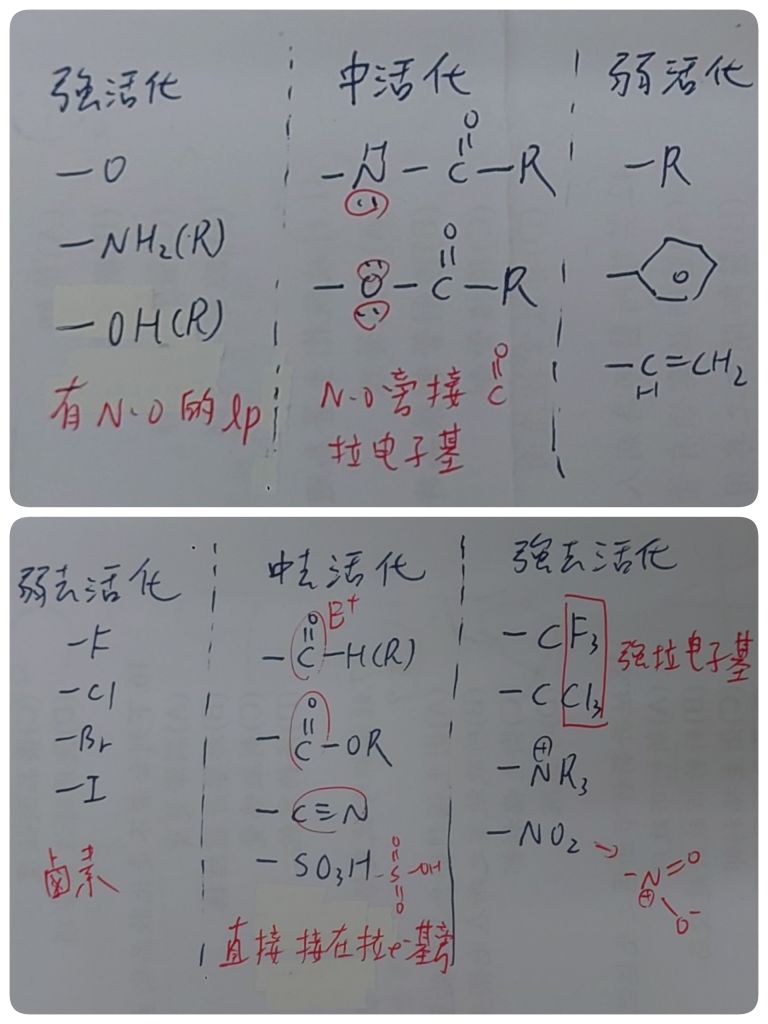 強活化
-O
-NH₂(R)
-OH(R)
有N、O的lp
中活化
-NH-C(=O)-R
-O-C(=O)-R
N、O旁接C=O
拉电子基
弱活化
-R
-CH=CH₂
弱去活化
-F
-Cl
-Br
-I
鹵素
中去活化
E⁺
-C(=O)-H(R)
-C(=O)-OR
-C≡N
-SO₃H -S(=O)(=O)-OH
直接接在拉e⁻基旁
強去活化
-CF₃
-CCl₃
強拉电子基
-N⊕R₃
-NO₂ → -N⊕(=O)O⁻